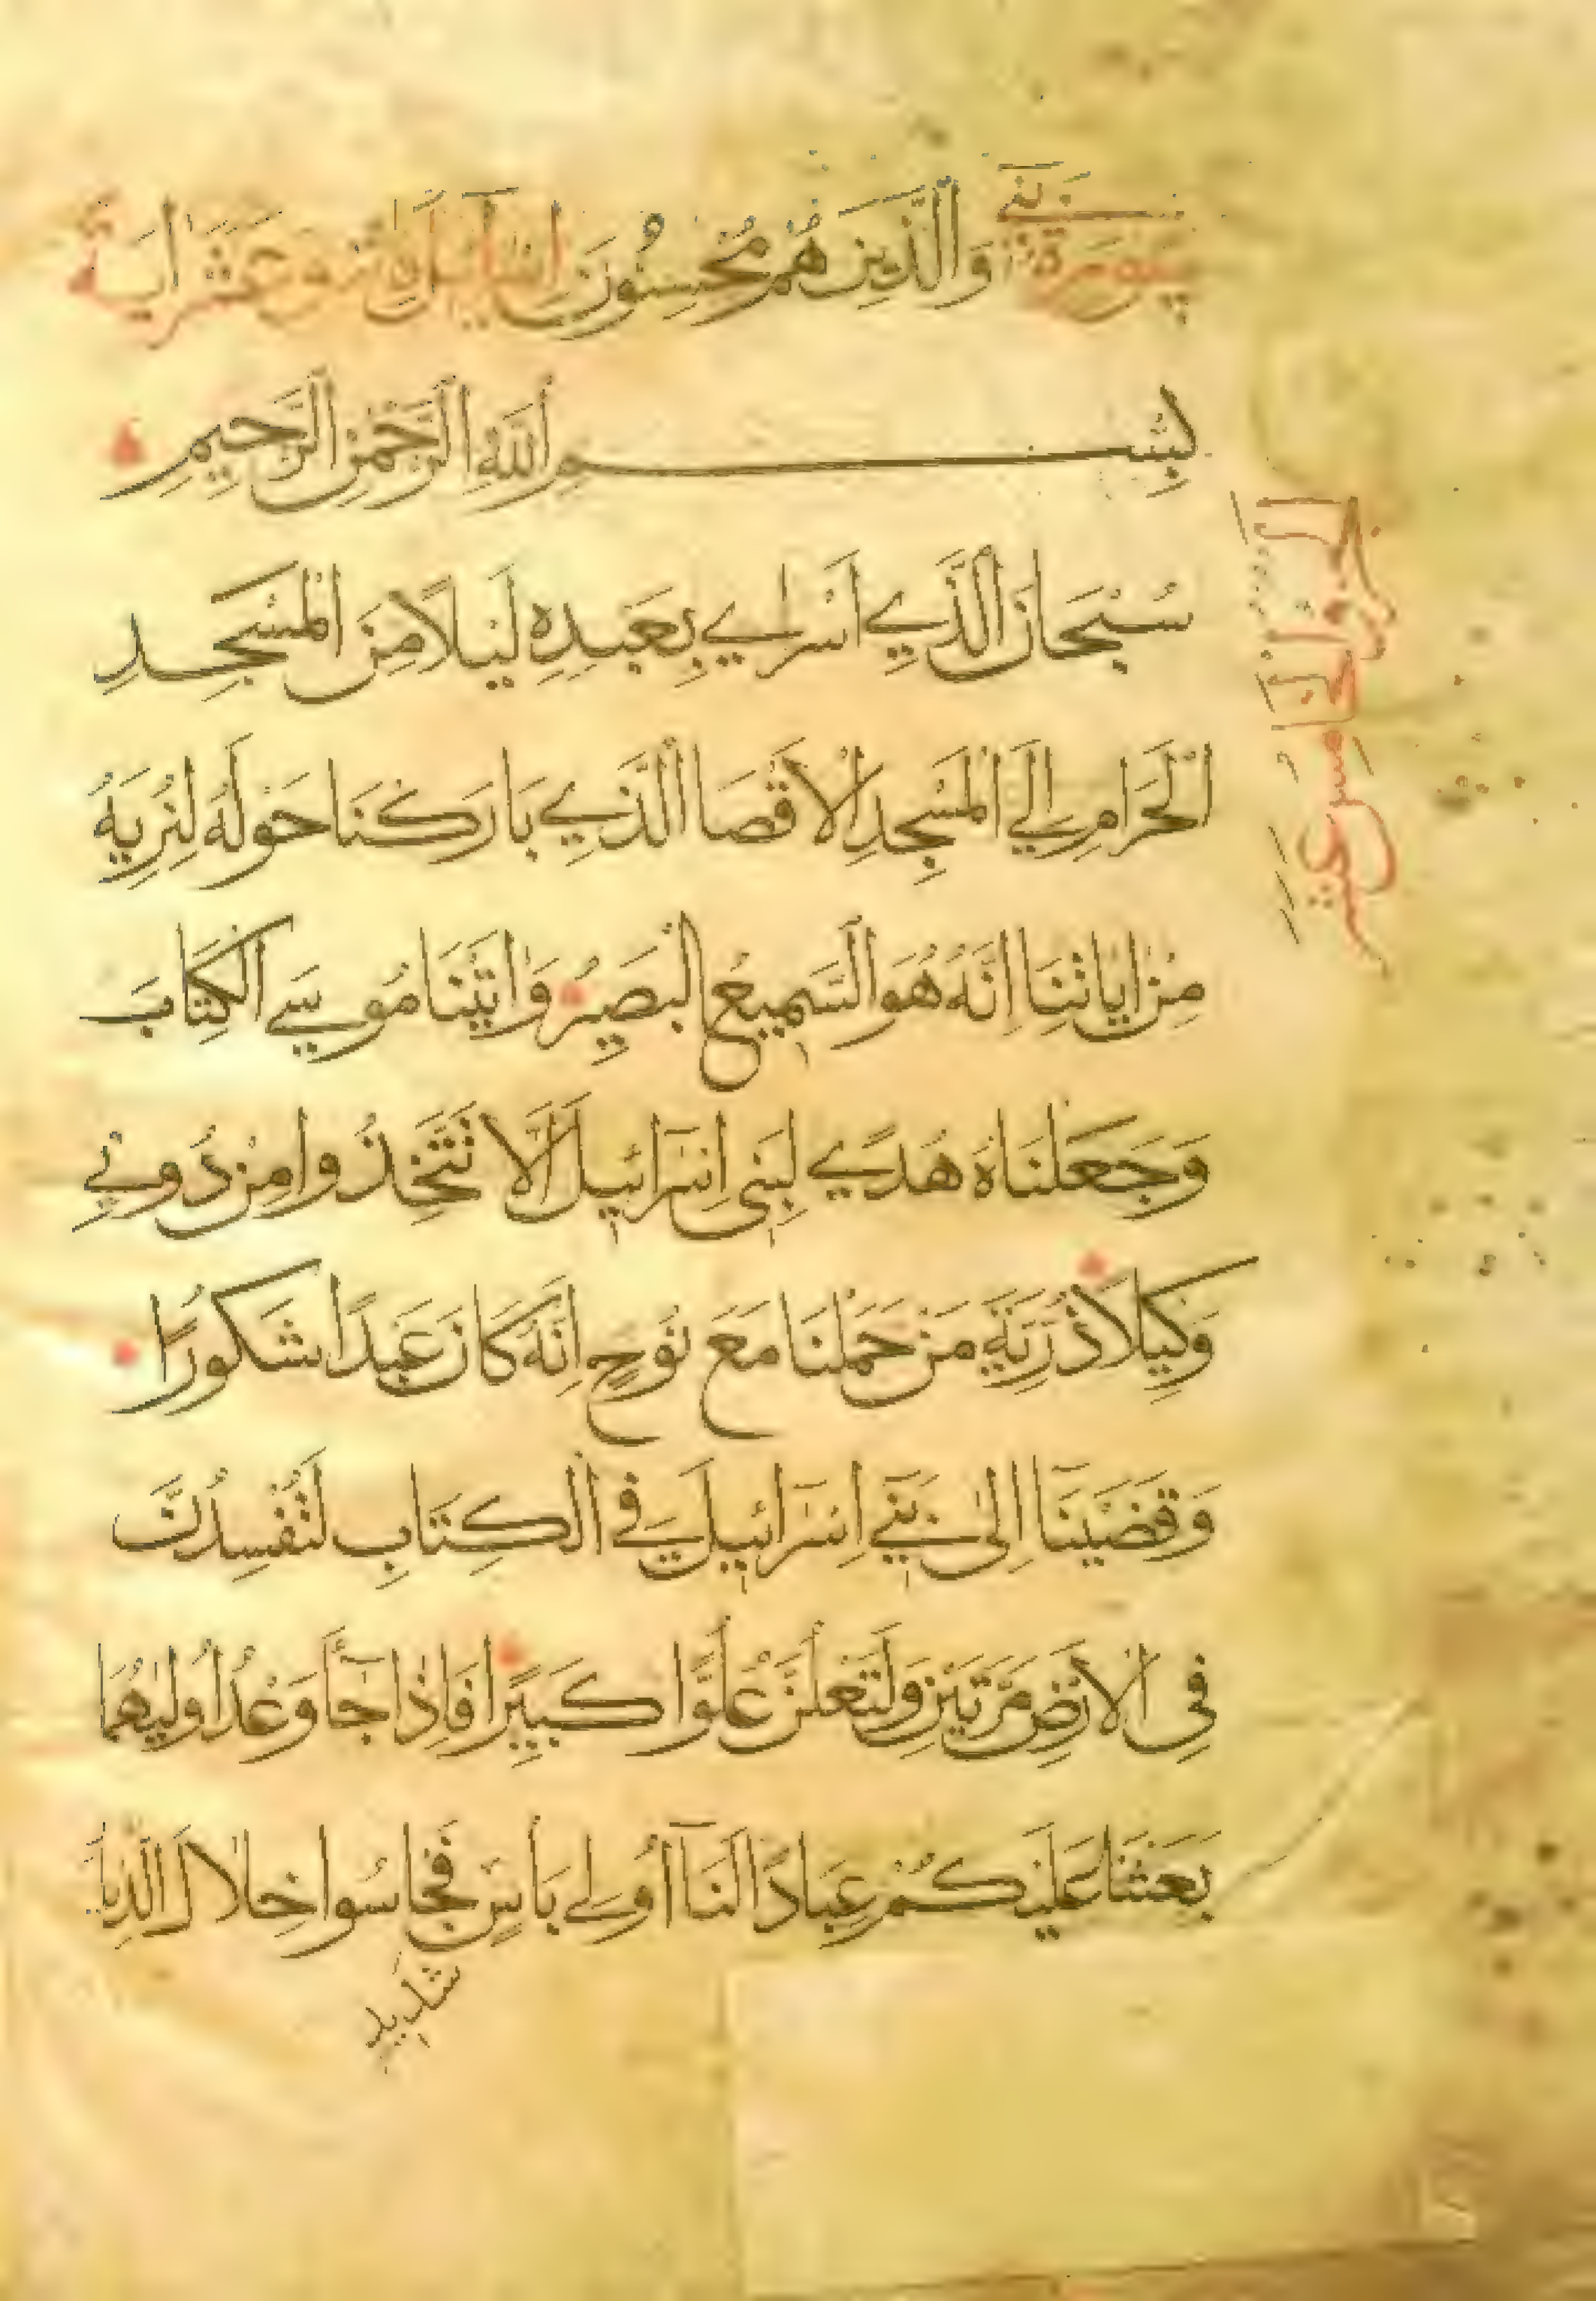 سورة بني وَالَّذِينَ هُمْ مُحْسِنُونَ اسرائيل عشر اية
بِسْمِ اللَّهِ الرَّحْمَنِ الرَّحِيمِ
سُبْحَانَ الَّذِي اَسْرَاي بِعَبْدِهِ لَيْلًا مِنَ الْمَسْجِدِ
الْحَرَامِ اِلَي الْمَسْجِدِ الْاَقْصَا الَّذِي بَارَكْنَا حَوْلَهُ لِنُرِيَهُ
مِنْ اٰيَاتِنَا اِنَّهُ هُوَ السَّمِيعُ الْبَصِيرُ وَاٰتَيْنَا مُوسَي الْكِتَابَ
وَجَعَلْنَاهُ هُدًي لِبَنِي اِسْرَآئِيلَ اَلَّا تَتَّخِذُوا مِنْ دُونِي
وَكِيلًا ذُرِّيَّةَ مَنْ حَمَلْنَا مَعَ نُوحٍ اِنَّهُ كَانَ عَبْدًا شَكُورًا
وَقَضَيْنَا اِلَى بَنِي اِسْرَآئِيلَ فِي الْكِتَابِ لَتُفْسِدُنَّ
فِي الْاَرْضِ مَرَّتَيْنِ وَلَتَعْلُنَّ عُلُوًّا كَبِيرًا فَاِذَا جَآءَ وَعْدُ اُولٰيهُمَا
بَعَثْنَا عَلَيْكُمْ عِبَادًا لَنَا اُولِي بَاْسٍ فَجَاسُوا خِلَالَ الدِّيَا
شديد
الجزو الخامس عشر